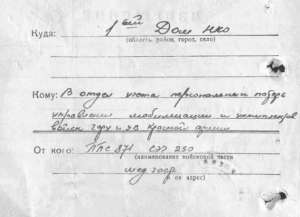 Куда: 1ый Дом НКО
(область, район, город, село)
Кому: В отдел учета персональных потерь
управления мобилизации и укомплектов
войск Красной армии
От кого: ППС 871 СЭГ 290
(наименование войсковой части
и ее адрес)